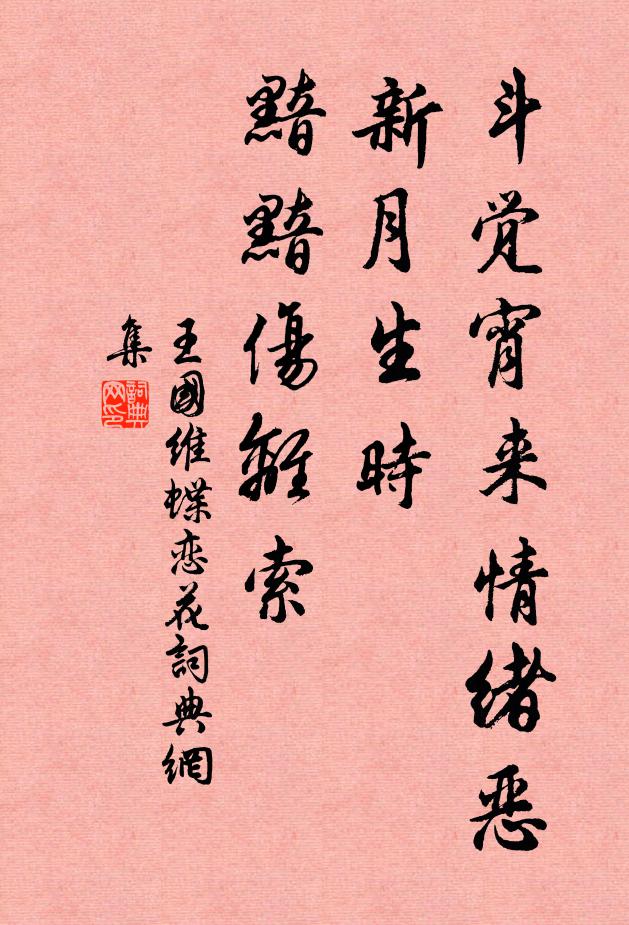 斗觉宵来情绪恶
新月生时
黯黯傷離索
王國维蝶恋花詞典網
集
詞典网印